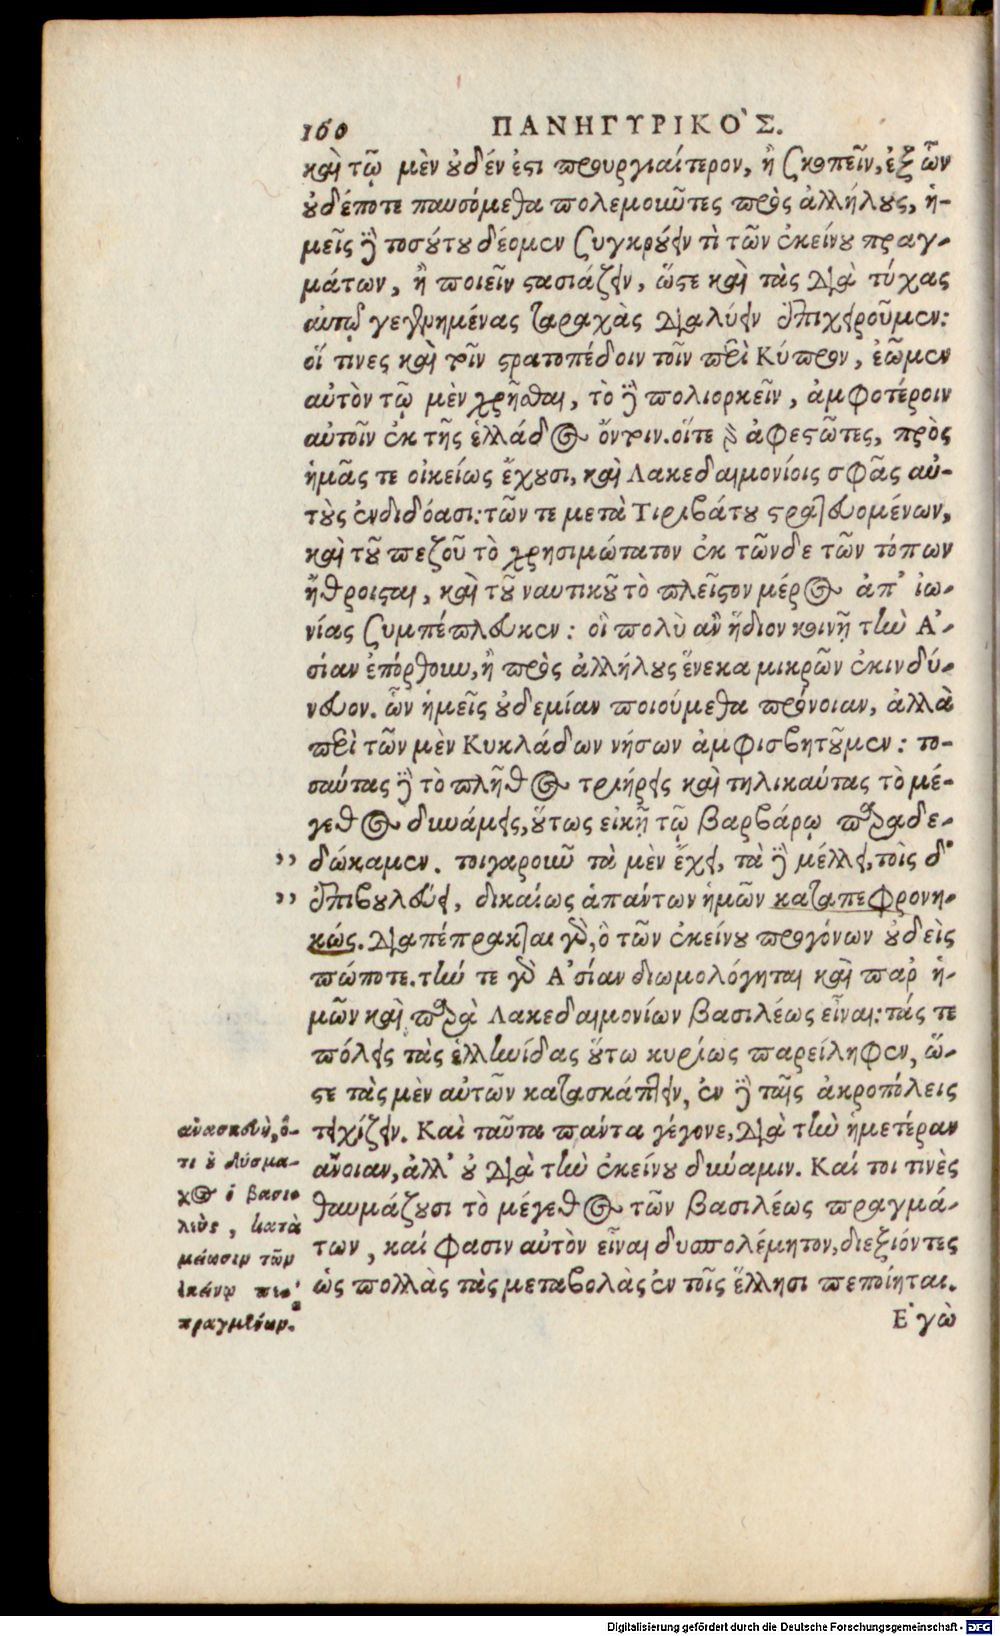 160 ΠΑΝΗΓΥΡΙΚΟ῝Σ.
καὶ τῷ μὲν οὐδέν ἐστι προυργιαίτερον, ἢ σκοπεῖν, ἐξ ὧν
οὐδέποτε παυσόμεθα πολεμοῦντες πρὸς ἀλλήλους, ἡ-
μεῖς δὲ τοσούτου δέομεν συγκρούειν τὶ τῶν ἐκείνου πραγ-
μάτων, ἢ ποιεῖν στασιάζειν, ὥστε καὶ τὰς διὰ τύχας
αὐτῷ γεγενημένας ταραχὰς διαλύειν ἐπιχειροῦμεν:
οἵ τινες καὶ τοῖν στρατοπέδοιν τοῖν περὶ Κύπρον, ἐῶμεν
αὐτὸν τῷ μὲν χρῆσθαι, τὸ δὲ πολιορκεῖν, ἀμφοτέροιν
αὐτοῖν ἐκ τῆς ἑλλάδος ὄντοιν. οἵτε δὲ ἀφεστῶτες, πρὸς
ἡμᾶς τε οἰκείως ἔχουσι, καὶ Λακεδαιμονίοις σφᾶς αὐ-
τοὺς ἐνδιδόασι: τῶν τε μετὰ Τιριβάτου στρατευομένων,
καὶ τοῦ πεζοῦ τὸ χρησιμώτατον ἐκ τῶνδε τῶν τόπων
ἤθροισται, καὶ τοῦ ναυτικοῦ τὸ πλεῖστον μέρος ἀπ' ἰω-
νίας συμπέπλευκεν: οἳ πολὺ ἂν ἥδιον κοινῇ τὴν Ἀ-
σίαν ἐπόρθουν, ἢ πρὸς ἀλλήλους ἕνεκα μικρῶν ἐκινδύ-
νευον. ὧν ἡμεῖς οὐδεμίαν ποιούμεθα πρόνοιαν, ἀλλὰ
περὶ τῶν μὲν Κυκλάδων νήσων ἀμφισβητοῦμεν: το-
σαύτας δὲ τὸ πλῆθος τριήρεις καὶ τηλικαύτας τὸ μέ-
γεθος δυνάμεις, οὕτως εἰκῇ τῷ βαρβάρῳ παραδε-
,, δώκαμεν. τοιγαροῦν τὰ μὲν ἔχει, τὰ δὲ μέλλει, τοῖς δ'
,, ἐπιβουλεύει, δικαίως ἁπάντων ἡμῶν καταπεφρονη-
κώς. διαπέπρακται γὰρ, ὃ τῶν ἐκείνου προγόνων οὐδεὶς
πώποτε. τήν τε γὰρ Ἀσίαν διωμολόγηται καὶ παρ ἡ-
μῶν καὶ παρὰ Λακεδαιμονίων βασιλέως εἶναι: τάς τε
πόλεις τὰς ἑλληνίδας οὕτω κυρίως παρείληφεν, ὥ-
στε τὰς μὲν αὐτῶν κατασκάπτειν, ἐν δὲ ταῖς ἀκροπόλεις
τειχίζειν. Καὶ ταῦτα πάντα γέγονε, διὰ τὴν ἡμετέραν
ἄνοιαν, ἀλλ' οὐ διὰ τὴν ἐκείνου δύναμιν. Καί τοι τινὲς
θαυμάζουσι τὸ μέγεθος τῶν βασιλέως πραγμά-
των, καί φασιν αὐτὸν εἶναι δυσπολέμητον, διεξιόντες
ὡς πολλὰς τὰς μεταβολὰς ἐν τοῖς ἕλλησι πεποίηται.
Ε᾿γὼ
ὅ-
τι οὐ δύσμα-
χος ὁ βασι-
λεὺς, κατὰ
μείωσιν τῶν
ἐκείνῳ πε-
πραγμένων.
Digitalisierung gefördert durch die Deutsche Forschungsgemeinschaft - DFG